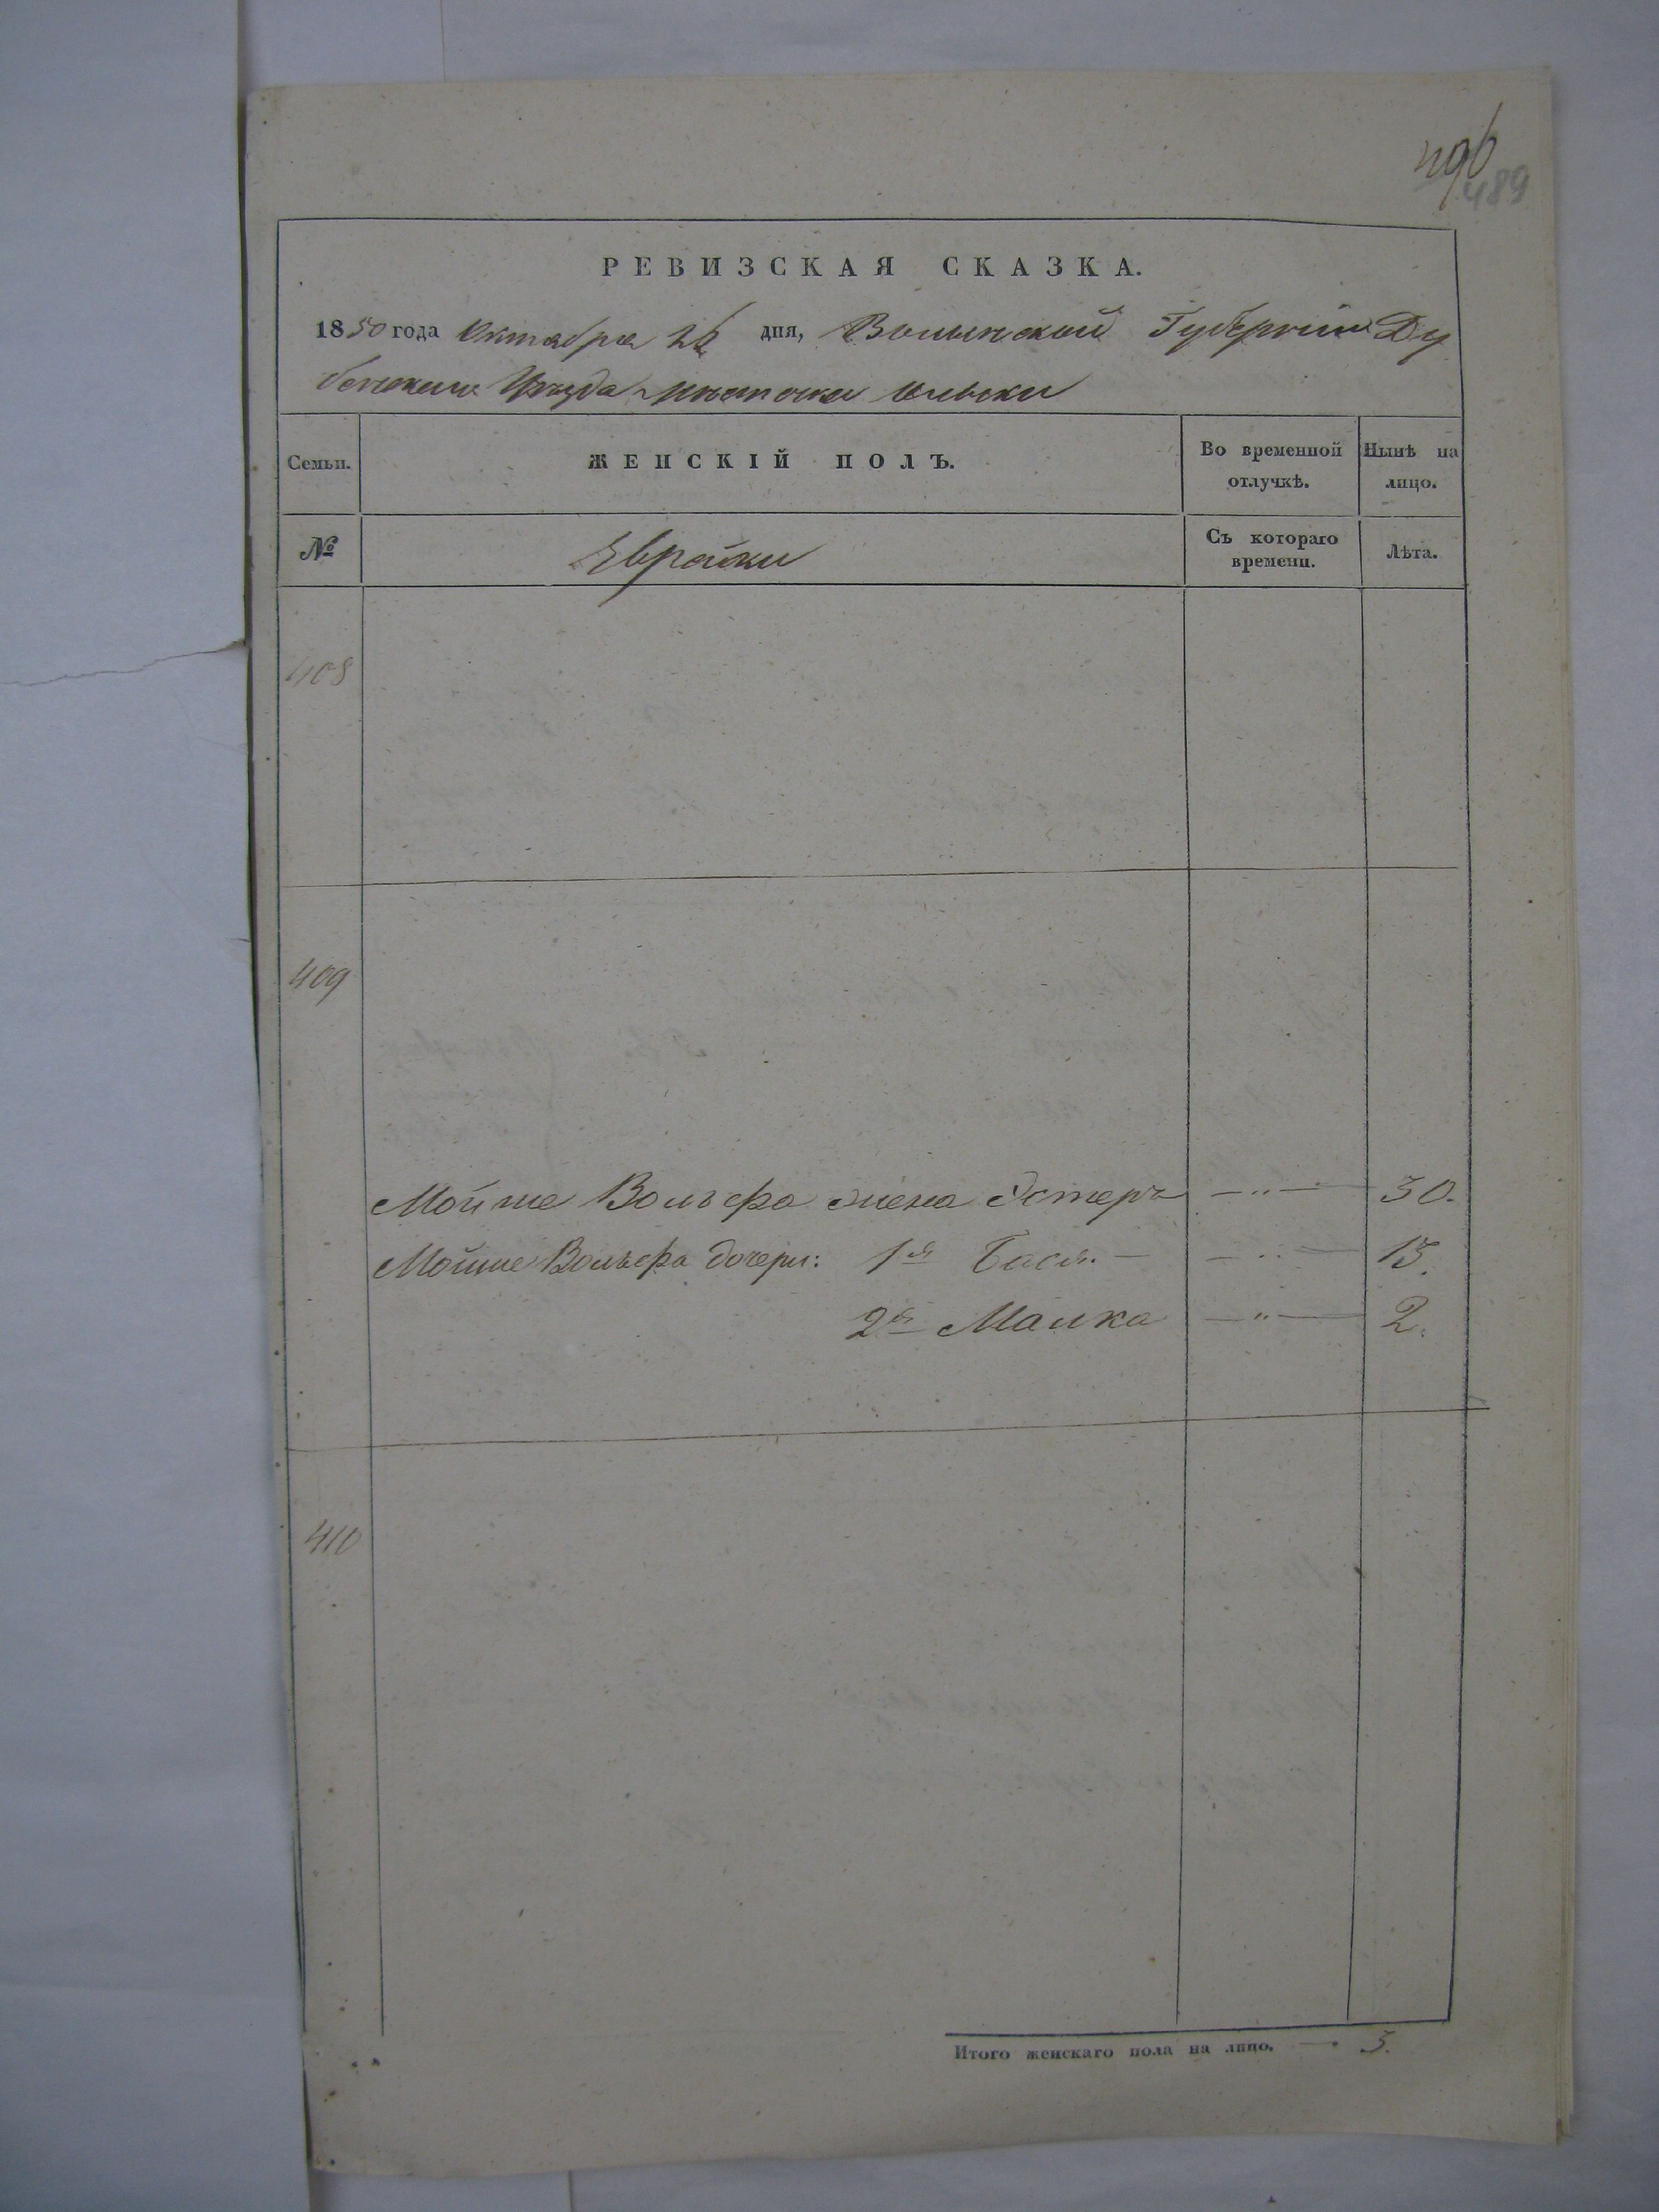 496
489
РЕВИЗСКАЯ СКАЗКА.
1850 года Октября 26 дня, Волынской Губернии Ду
бенскаго Уѣзда мѣстечка Олыки
Семьи. ЖЕНСКІЙ ПОЛЪ. Во временной отлучкѣ. Нынѣ на лицо.
№ Еврейки Съ котораго времени. Лѣта.
408
409
Мойше Вольфа жена Эстеръ — " — 30.
Мойше Вольфа дочери: 1я Бася — — " — 13.
2я Малка — " — 2.
410
Итого женскаго пола на лицо. — 3.